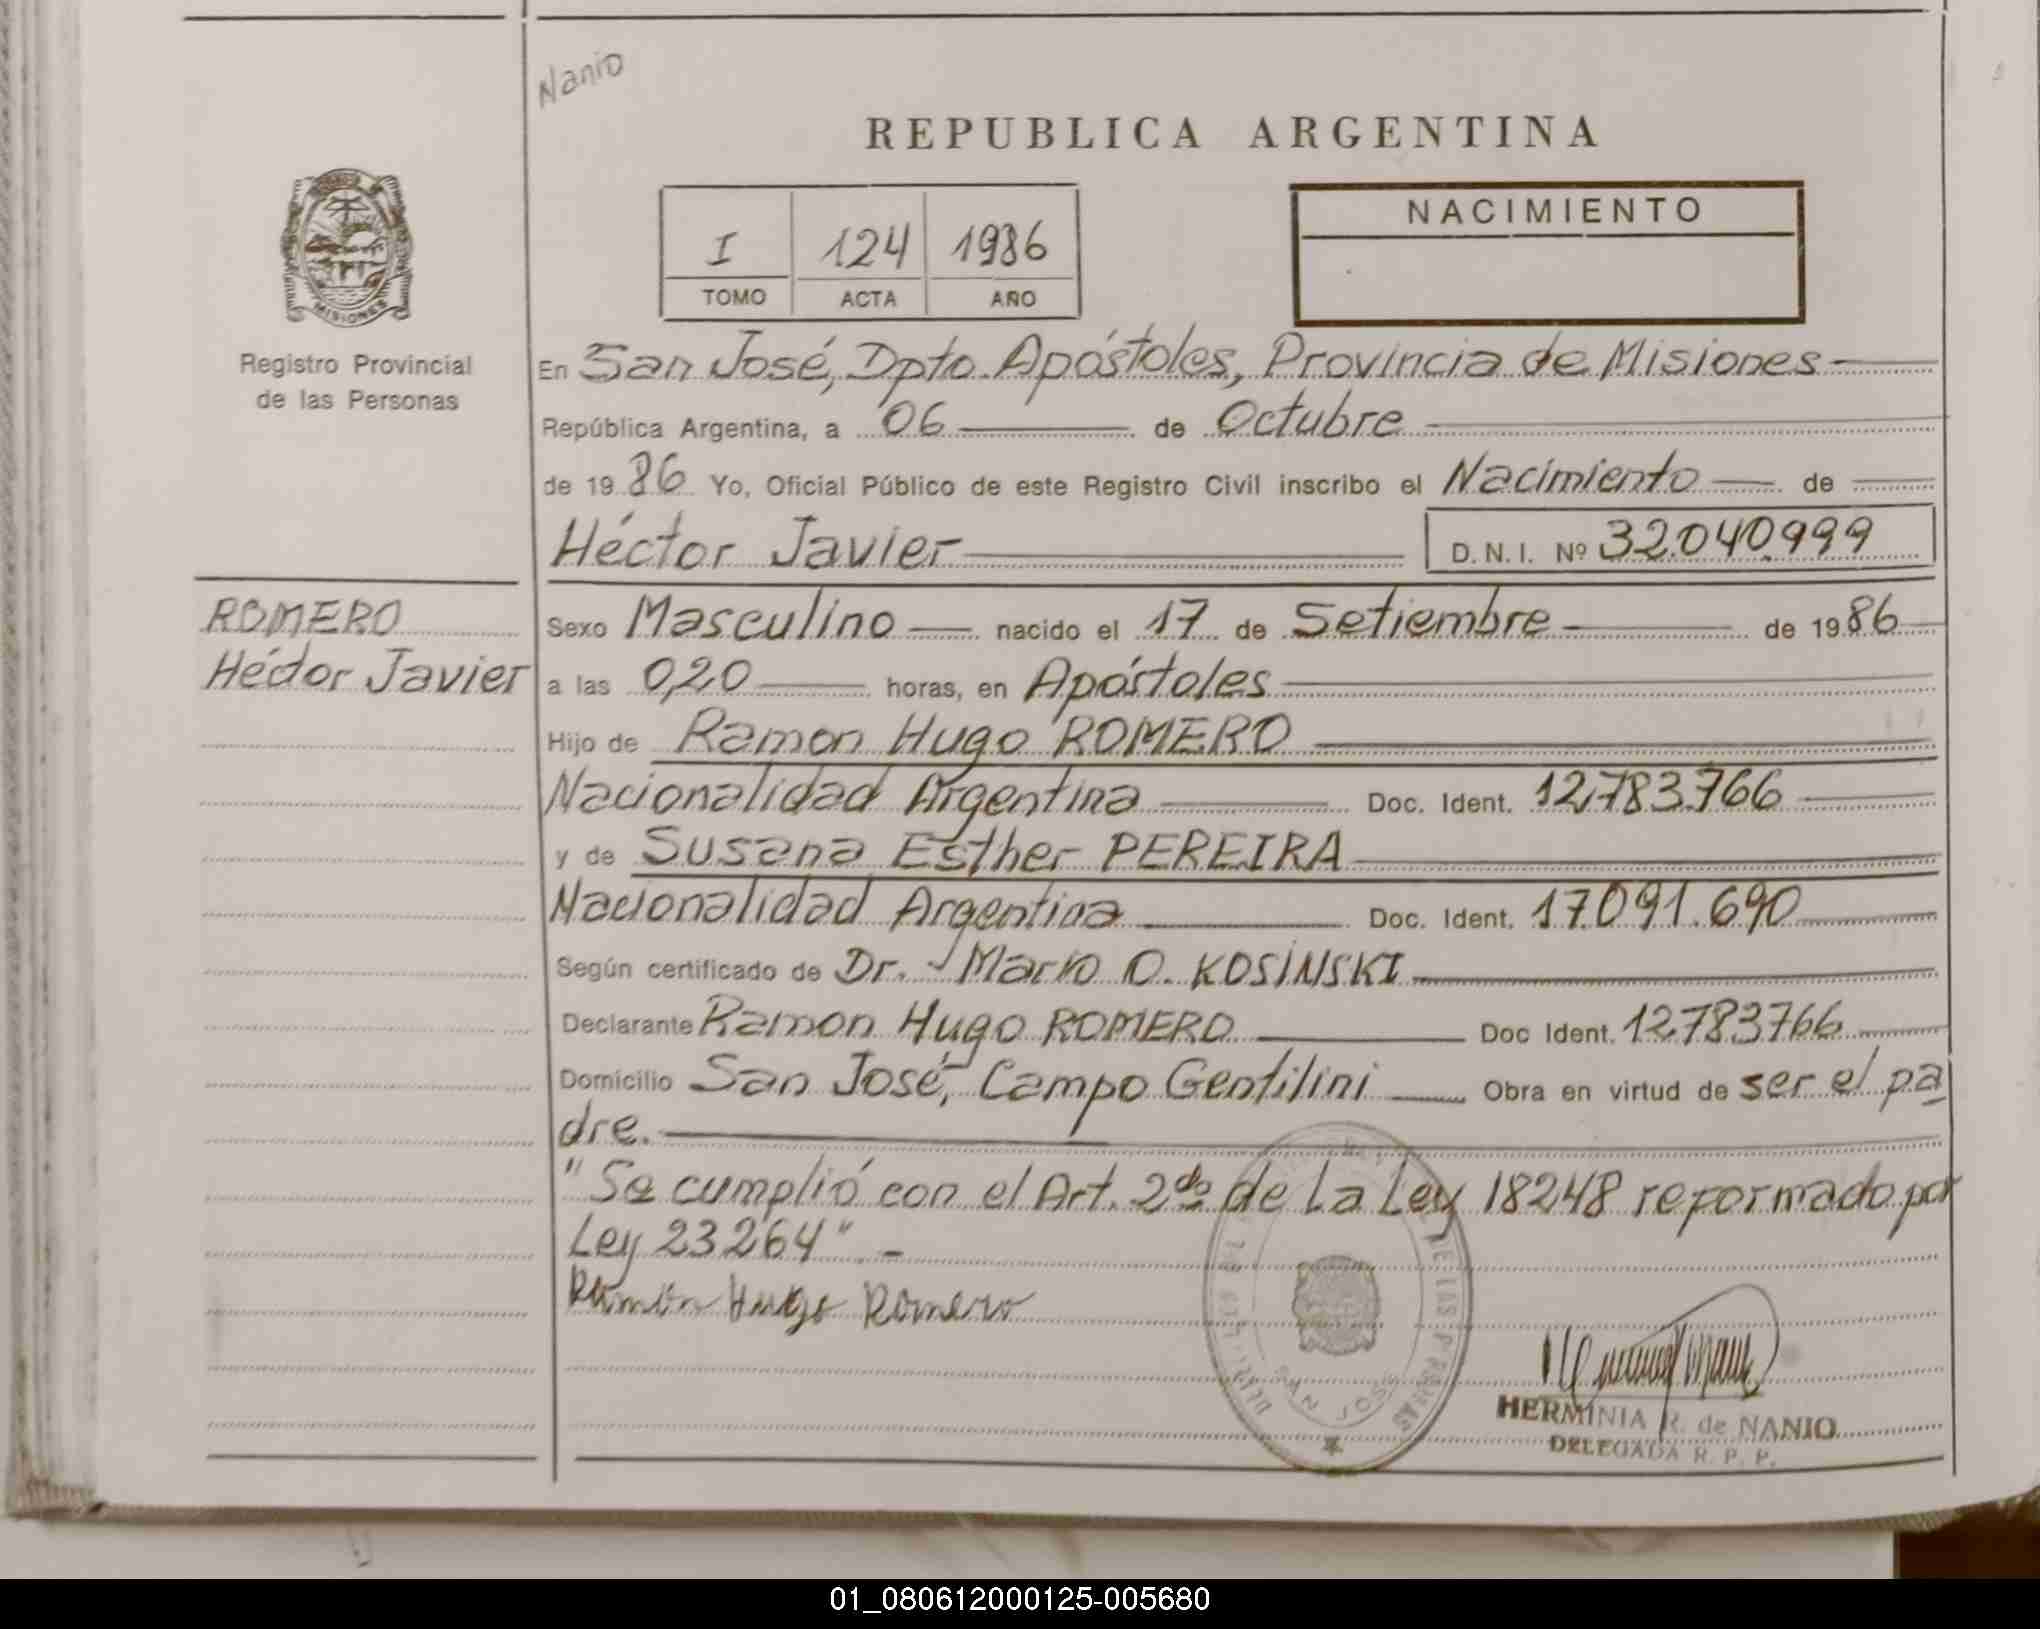 Nanio
REPUBLICA ARGENTINA
I 124 1986
TOMO ACTA AÑO
NACIMIENTO
MISIONES
Registro Provincial
de las Personas
En San José, Dpto. Apóstoles, Provincia de Misiones
República Argentina, a 06 de Octubre
de 1986 Yo, Oficial Público de este Registro Civil inscribo el Nacimiento de
Héctor Javier D.N.I. Nº 32.040.999
ROMERO
Héctor Javier
Sexo Masculino nacido el 17 de Setiembre de 1986
a las 0,20 horas, en Apóstoles
Hijo de Ramon Hugo ROMERO
Nacionalidad Argentina Doc. Ident. 12.783.766
y de Susana Esther PEREIRA
Nacionalidad Argentina Doc. Ident. 17.091.690
Según certificado de Dr. Mario O. KOSINSKI
Declarante Ramon Hugo ROMERO Doc Ident. 12783766
Domicilio San José, Campo Gentilini Obra en virtud de ser el pa
dre.
"Se cumplió con el Art. 2do de La Ley 18248 reformado por
Ley 23264" . -
Ramón Hugo Romero
DE LAS PERSONAS
SAN JOSE
HERMINIA R. de NANIO
DELEGADA R. P. P.
01_080612000125-005680